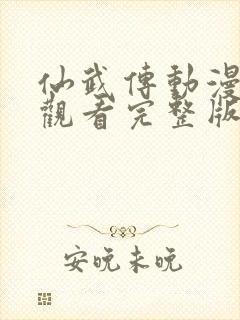 仙武傳動漫
觀看完整版
安晚未晚